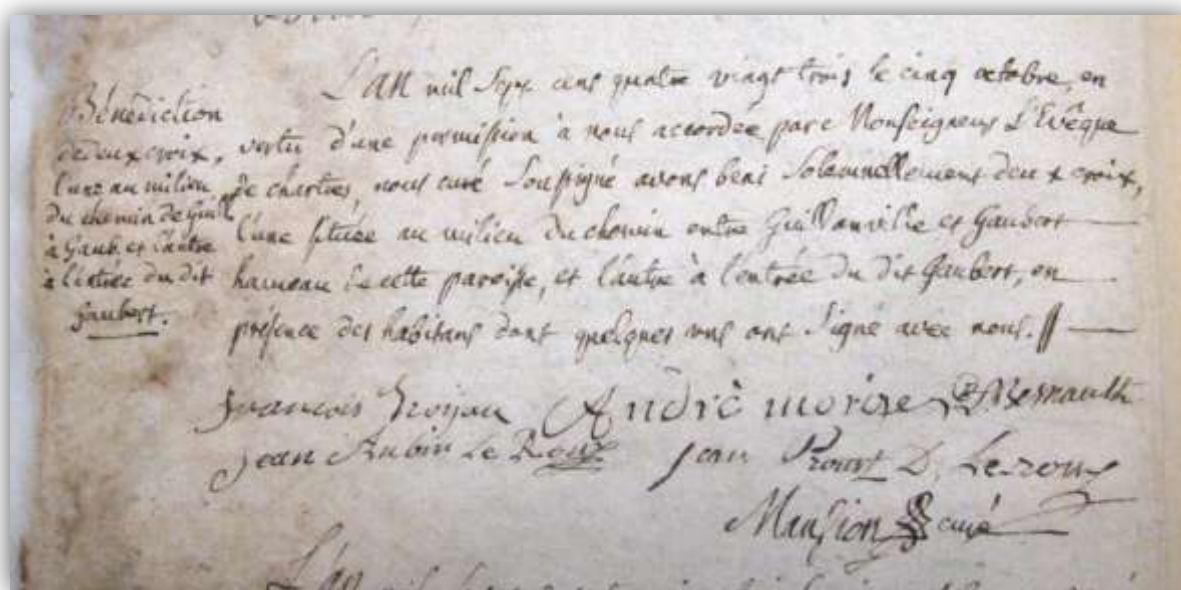 Bénédiction
de deux croix,
l'une au milieu
du chemin de Guill
à Gaub. et l'autre
à l'entrée du dit
Gaubert.
L'an mil sept cent quatre vingt trois le cinq octobre, en
vertu d'une permission à nous accordée par Monseigneur L'Evêque
de chartres, nous curé soussigné avons beni solemnellement deux croix,
l'une située au milieu du chemin entre Guillonville et Gaubert
hameau de cette paroisse, et l'autre à l'entrée du dit Gaubert, en
présence des habitans dont quelques uns ont signé avec nous.
françois André morize
jean Aubin Le Roux jean Prout D. Leroux
Mansion curé
L'an mil